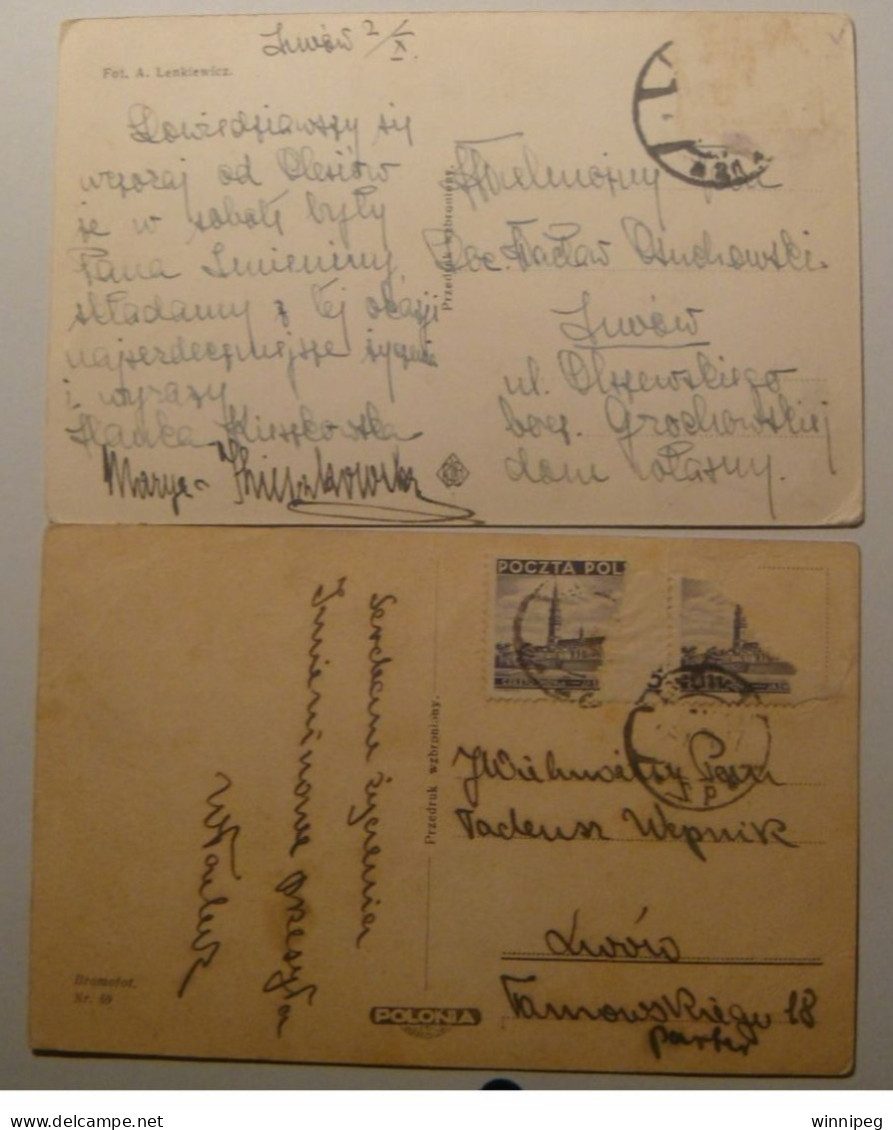 Lwów 2/X.
Fot. A. Lenkiewicz.
Dowiedziawszy się
wczoraj od Olesiów
że w sobotę były
Pana Imieniny
składamy z tej okazji
najserdeczniejsze życzenia
i wyrazy
Hanka Kieszkowska
Marya
Przedruk wzbroniony.
Wielmożny Pan
Wacław Osuchowski.
Lwów
ul. Olszewskiego
bocz. Grochowskiej
dom własny.
POCZTA POL
Serdeczne życzenia
Imieninowe przesyła
Władek
Przedruk wzbroniony.
JWielmożny Pan
Tadeusz Wepnik
Lwów
Tarnowskiego 18
parter
Bromofot.
Nr. 69
POLONIA
delcampe.net
winnipeg